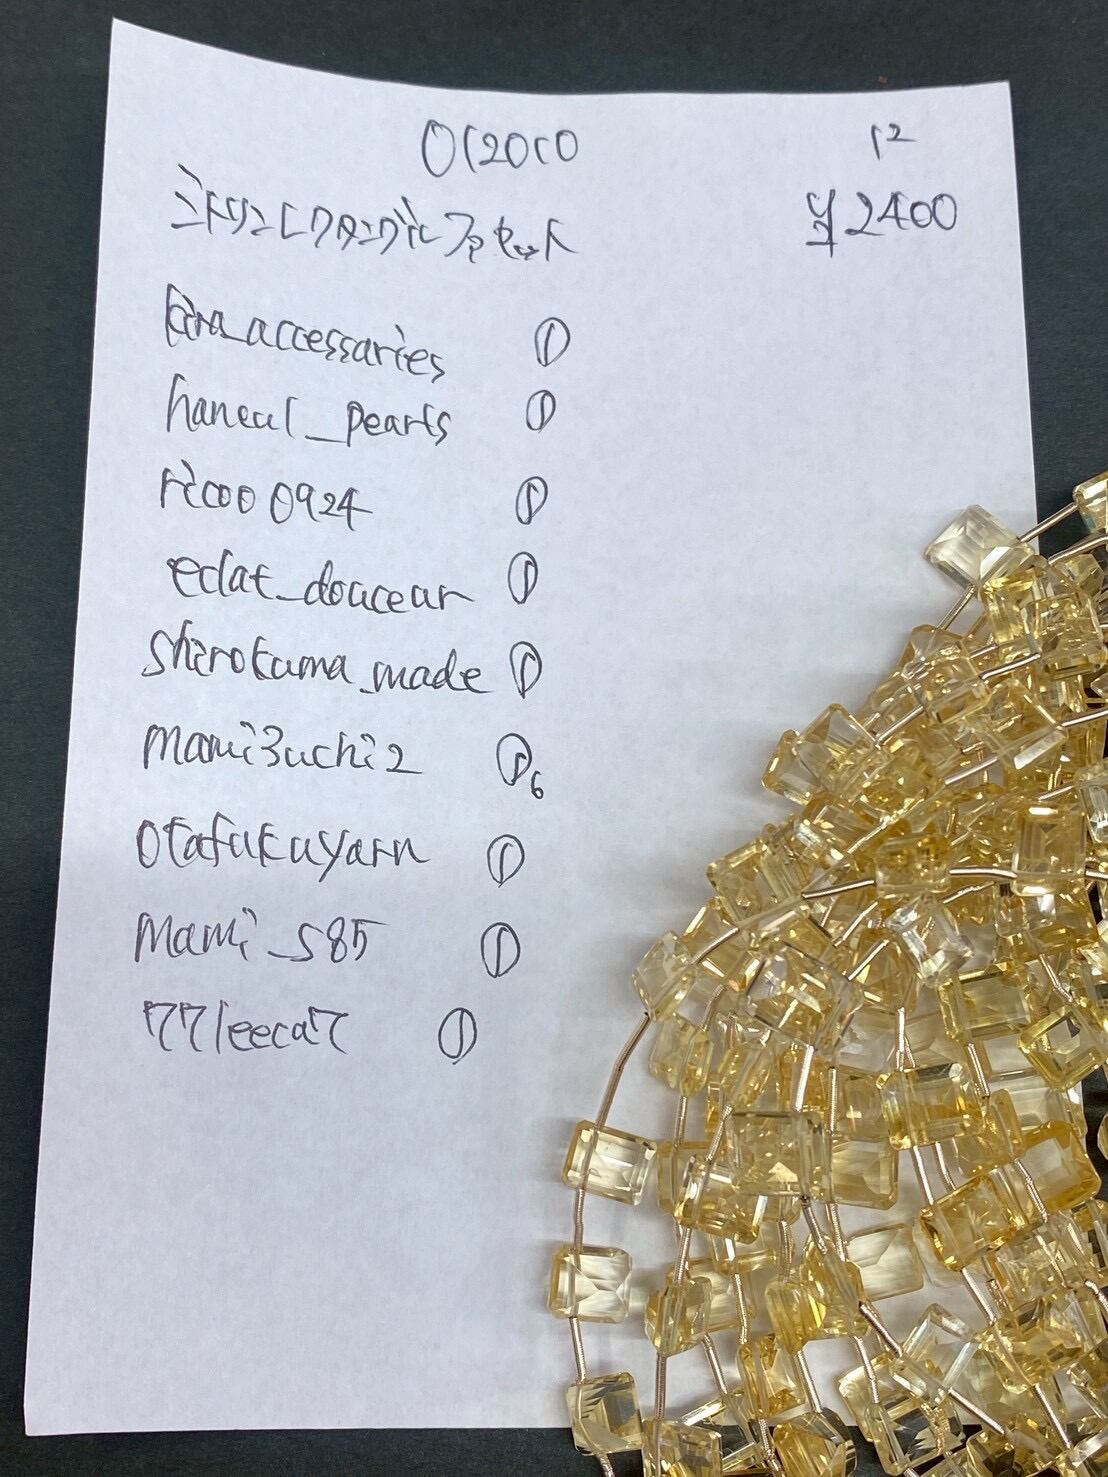 012010 12
シトリンレクタングルファセット ¥2400
kira_accessaries ①
haneul_pearls ①
ricoo0924 ①
eclat_douceur ①
shirokuma_made ①
mami3uchi2 ①6
otafukuyarn ①
mami_s85 ①
77leecat ①